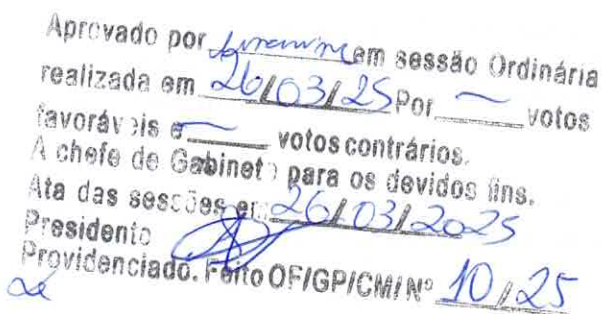 Aprovado por unanime em sessão Ordinária
realizada em 26/03/25 Por ~ votos
favoráveis e ~ votos contrários.
A chefe de Gabinete para os devidos fins.
Ata das sessões em 26/03/2025
Presidente
Providenciado. Feito OF/GP/CM/Nº 10/25